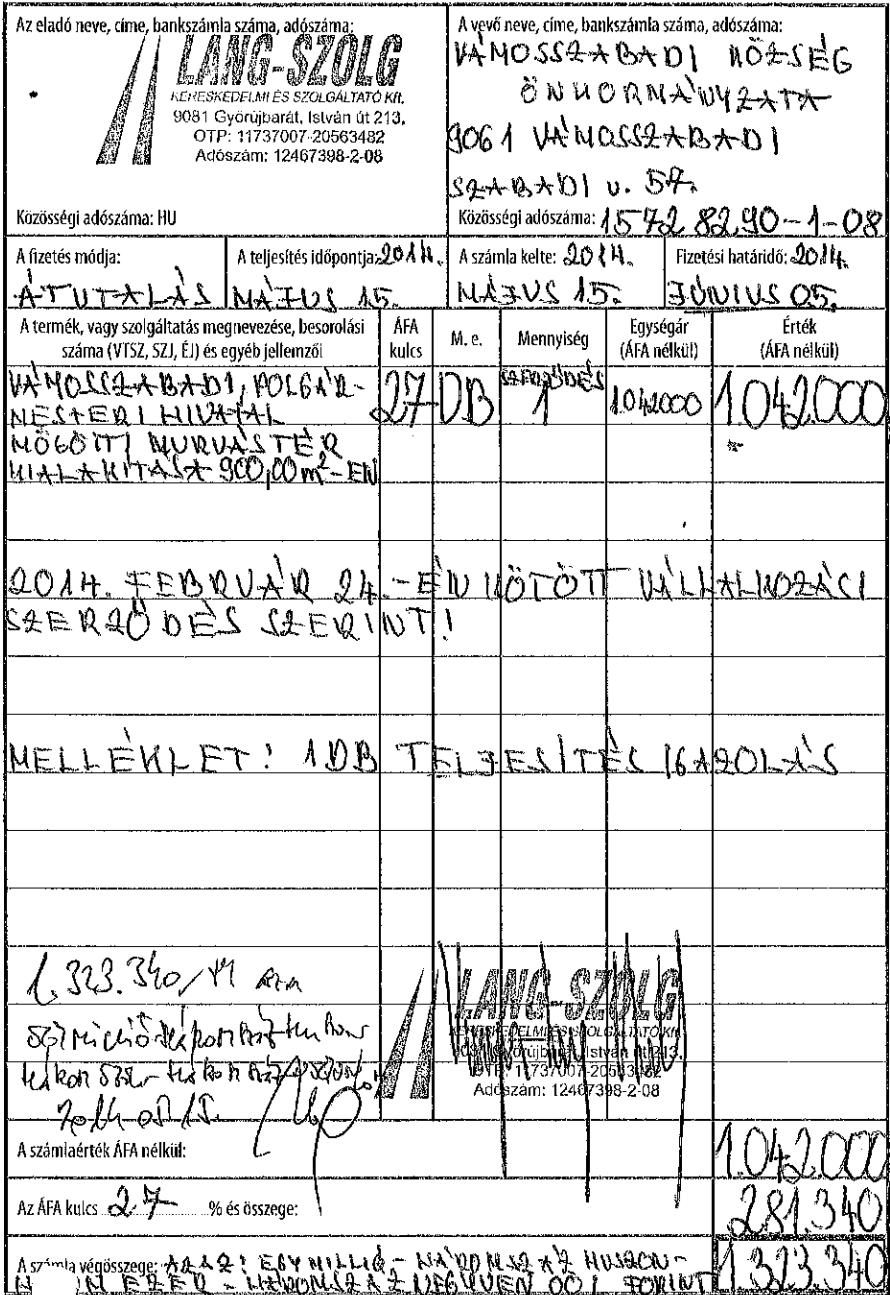 Az eladó neve, címe, bankszámla száma, adószáma:
LANG-SZOLG
KERESKEDELMI ÉS SZOLGÁLTATÓ Kft.
9081 Győrújbarát, István út 213.
OTP: 11737007-20563482
Adószám: 12467398-2-08
Közösségi adószáma: HU
A vevő neve, címe, bankszámla száma, adószáma:
VÁMOSSZABADI KÖZSÉG
ÖNKORMÁNYZATA
9061 VÁMOSSZABADI
SZABADI u. 57.
Közösségi adószáma: 15728290-1-08
A fizetés módja:
ÁTUTALÁS
A teljesítés időpontja: 2014.
MÁJUS 15.
A számla kelte: 2014.
MÁJUS 15.
Fizetési határidő: 2014.
JÚNIUS 05.
A termék, vagy szolgáltatás megnevezése, besorolási
száma (VTSZ, SZJ, ÉJ) és egyéb jellemzői
ÁFA
kulcs
M. e.
Mennyiség
Egységár
(ÁFA nélkül)
Érték
(ÁFA nélkül)
VÁMOSSZABADI, POLGÁR-
MESTERI HIVATAL
MÖGÖTTI MURVÁS TÉR
KIALAKÍTÁSA 900,00 m²-EN
27 DB 1 1.042000 1.042.000
2014. FEBRUÁR 24.-ÉN KÖTÖTT VÁLLALKOZÁSI
SZERZŐDÉS SZERINT!
MELLÉKLET: 1 DB TELJESÍTÉS IGAZOLÁS
1.323.340
LANG-SZOLG
KERESKEDELMI ÉS SZOLGÁLTATÓ Kft.
9081 Győrújbarát, István út 213.
OTP: 11737007-20563482
Adószám: 12467398-2-08
A számlaérték ÁFA nélkül: 1.042.000
Az ÁFA kulcs 27 % és összege: 281.340
A számla végösszege: AZAZ: EGYMILLIÓ-HÁROMSZÁZHUSZON-
EZER-HÁROMSZÁZNEGYVEN 00/ FORINT 1.323.340